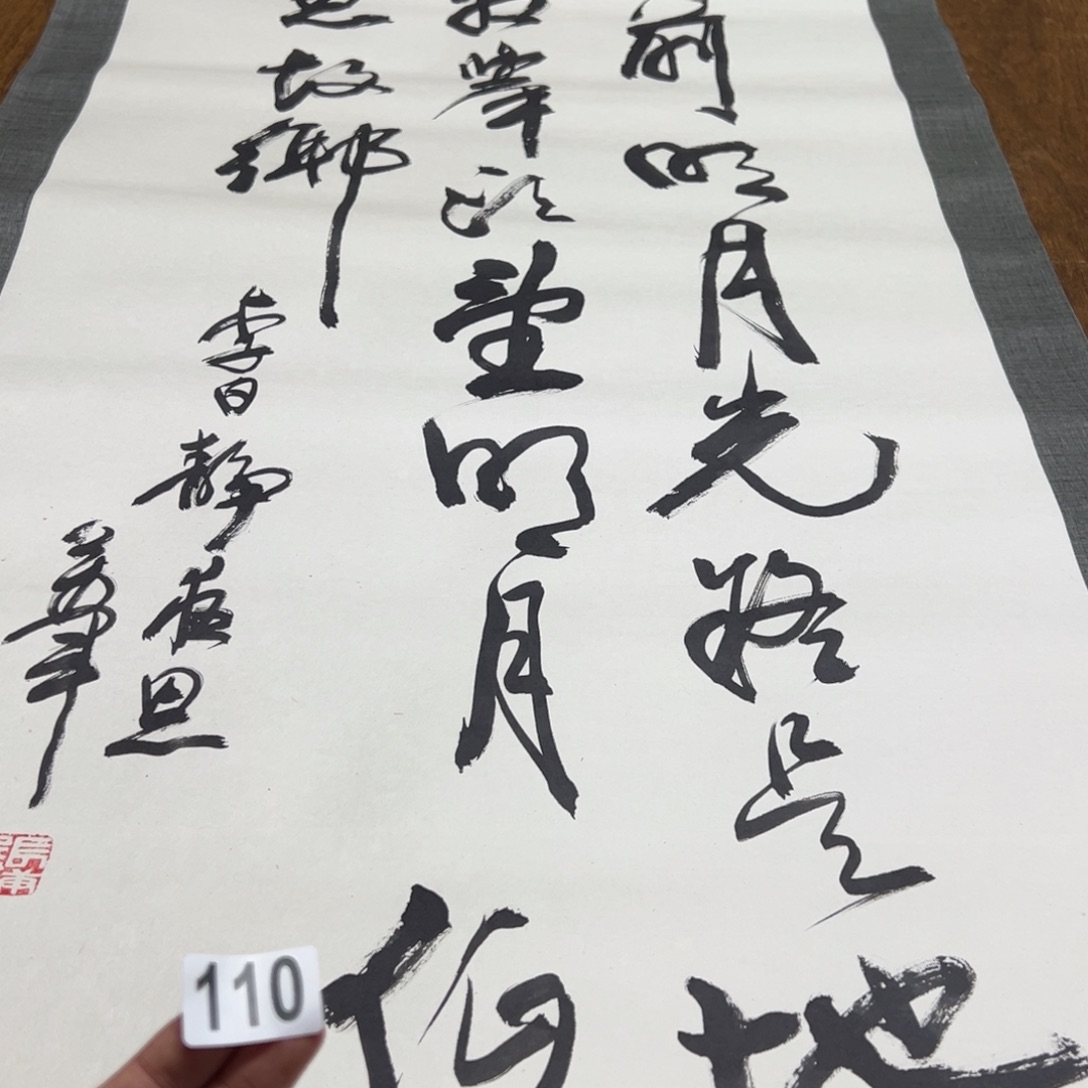 前明月光疑是地
舉頭望明月低
思故鄉
李白靜夜思
110